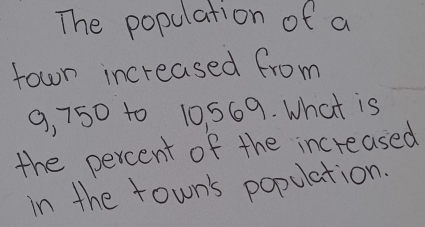 The population of a
town increased from
9,750 to 10,569. What is
the percent of the increased
in the town's population.